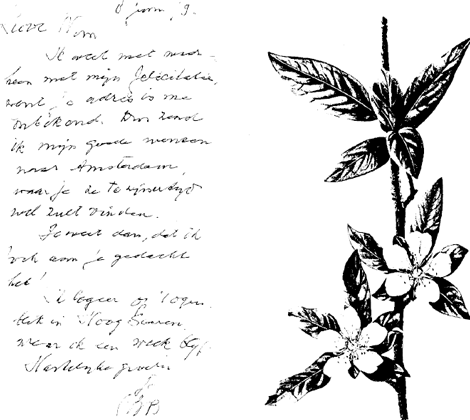 8 juni 79.
Lieve Wom
Ik weet niet waar-
heen met mijn felicitatie,
want je adres is me
onbekend. Dus zend
ik mijn goede wensen
naar Amsterdam,
waar je ze te zijner tijd
wel zult vinden.
Je weet dan, dat ik
ook aan je gedacht
heb!
Ik logeer op 't ogen-
blik in Hoog Soeren,
waar ik een week blijf.
Hartelijke groeten